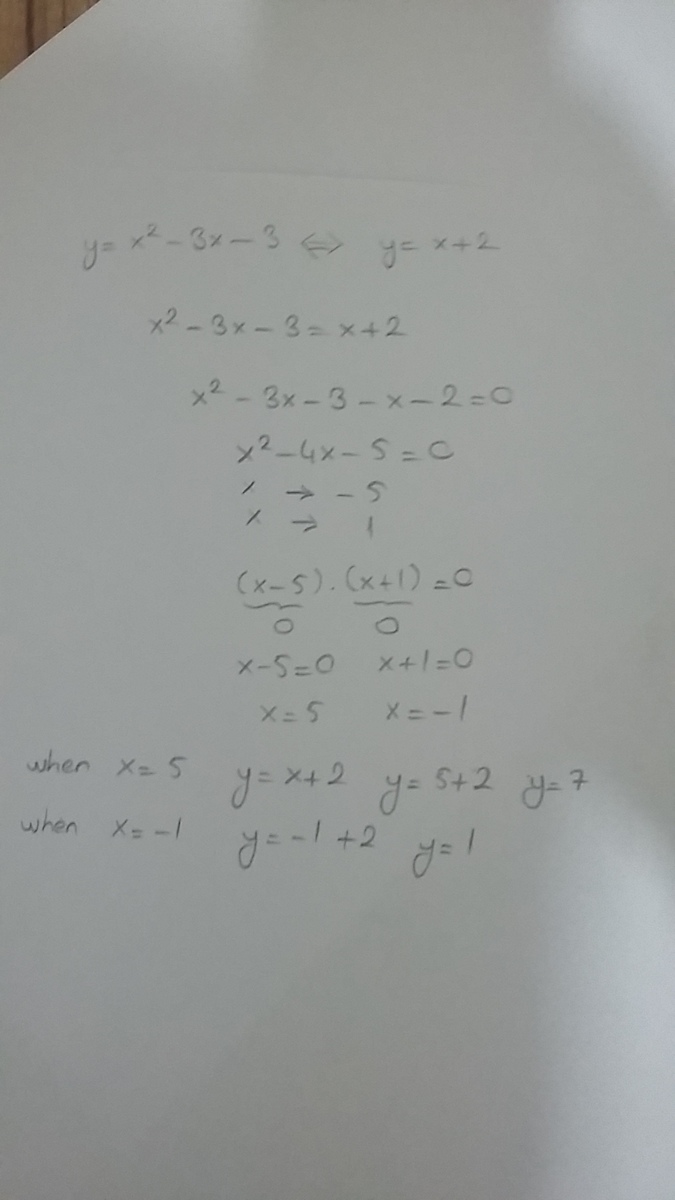 y= x² - 3x - 3 ⇔ y= x+2
x² - 3x - 3 = x+2
x² - 3x - 3 - x - 2 = 0
x² - 4x - 5 = 0
x → - 5
x → 1
(x-5) . (x+1) = 0
0 0
x-5=0 x+1=0
x=5 x=-1
when x= 5 y= x+2 y= 5+2 y= 7
when x= -1 y= -1 +2 y= 1